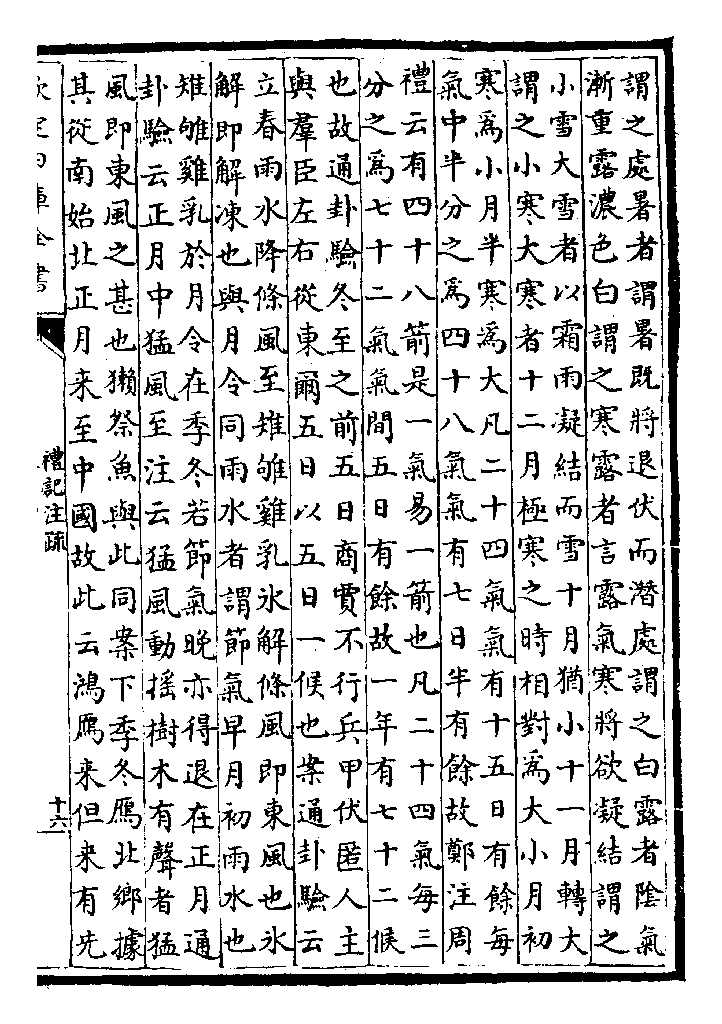 謂之處暑者謂暑既將退伏而潛處謂之白露者陰氣
漸重露濃色白謂之寒露者言露氣寒將欲凝結謂之
小雪大雪者以霜雨凝結而雪十月猶小十一月轉大
謂之小寒大寒者十二月極寒之時相對為大小月初
寒為小月半寒為大凡二十四氣氣有十五日有餘每
氣中半分之為四十八氣氣有七日半有餘故鄭注周
禮云有四十八箭是一氣易一箭也凡二十四氣每三
分之為七十二氣氣間五日有餘故一年有七十二候
也故通卦驗冬至之前五日商賈不行兵甲伏匿人主
與羣臣左右從東爾五日以五日一候也案通卦驗云
立春雨水降條風至雉雊雞乳氷解條風即東風也氷
解即解凍也與月令同雨水者謂節氣早月初雨水也
雉雊雞乳於月令在季冬若節氣晚亦得退在正月通
卦驗云正月中猛風至注云猛風動摇樹木有聲者猛
風即東風之甚也獺祭魚與此同案下季冬鴈北鄉據
其從南始北正月来至中國故此云鴻鴈来但来有先
欽定四庫全書
禮記注疏
十六